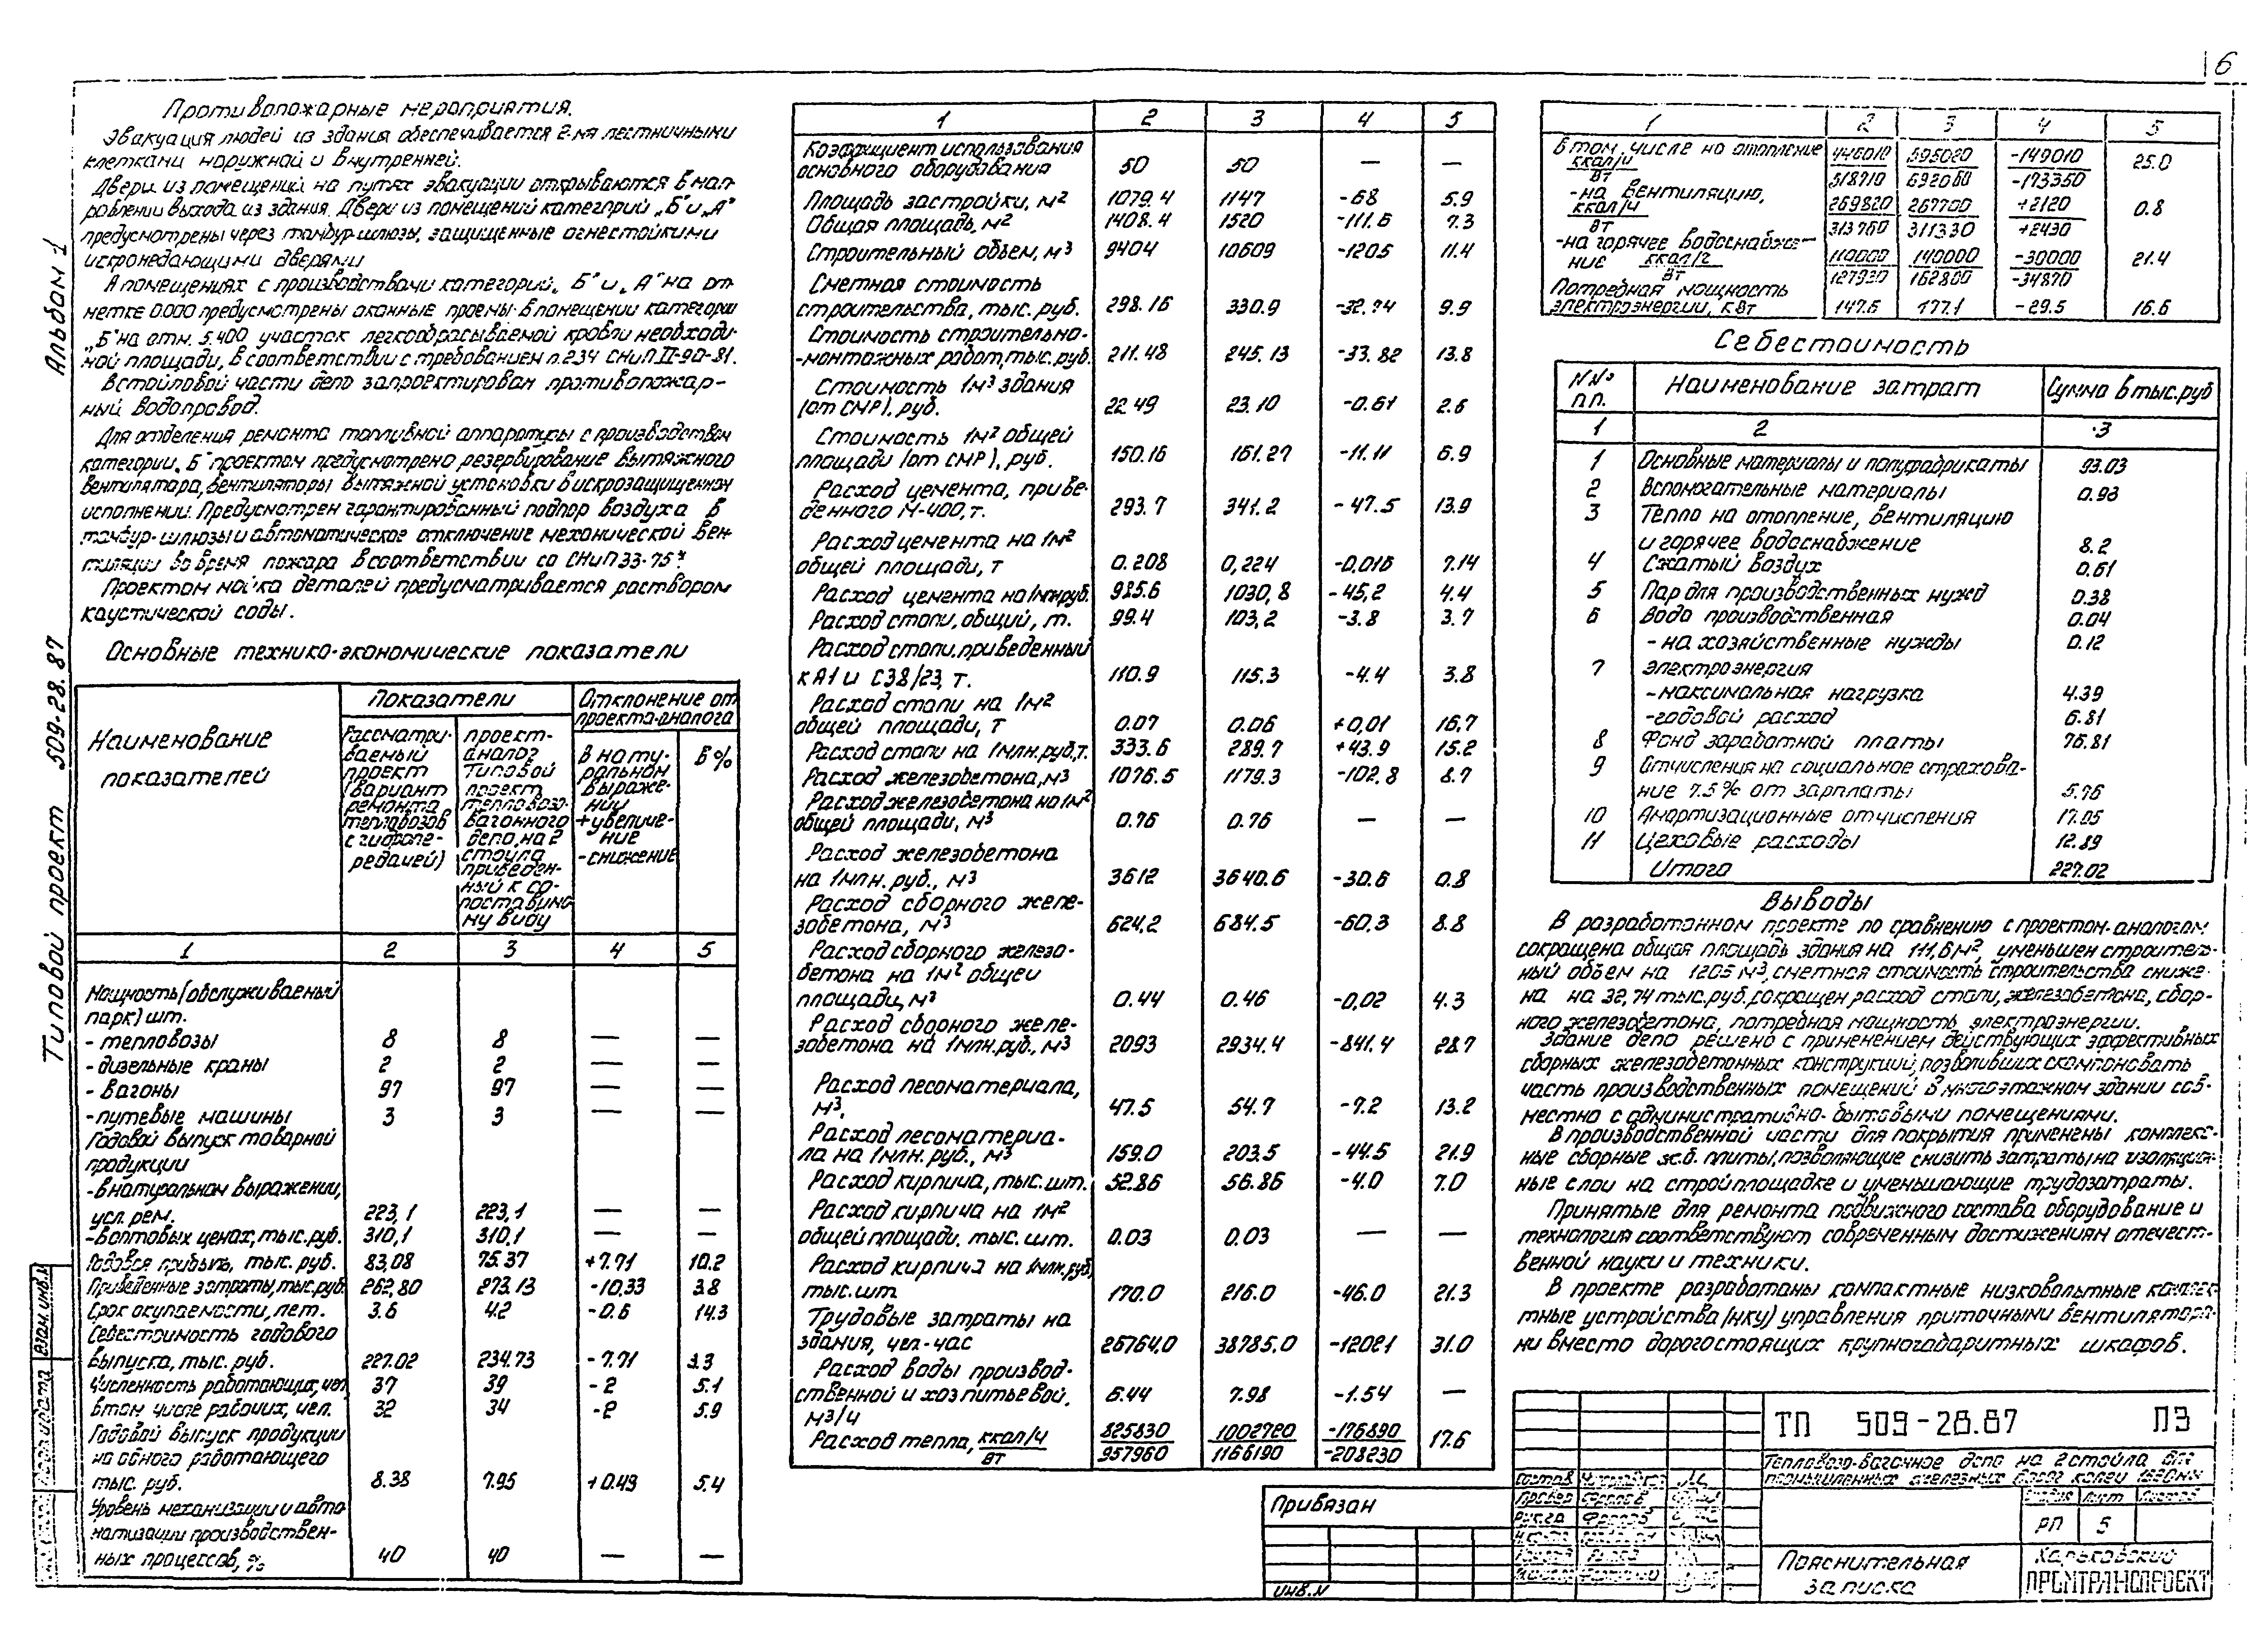 6
Альбом 1
Типовой проект 509-28.87
Противопожарные мероприятия.
Эвакуация людей из здания обеспечивается 2-мя лестничными
клетками наружной и внутренней.
Двери из помещений на путях эвакуации открываются в нап-
равлении выхода из здания. Двери из помещений категорий „Б" и „А"
предусмотрены через тамбур-шлюзы, защищенные огнестойкими
искронедающими дверями
В помещениях с производствами категорий „Б" и „А" на от-
метке 0.000 предусмотрены оконные проемы. В помещении категории
„Б" на отм. 5.400 участок легкосбрасываемой кровли необходи-
мой площади, в соответствии с требованием п.2.34 СНиП II-90-81.
В стойловой части депо запроектирован противопожар-
ный водопровод.
Для отделения ремонта топливной аппаратуры с производством
категории „Б" проектом предусмотрено резервирование вытяжного
вентилятора, вентиляторы вытяжной установки в искрозащищенном
исполнении. Предусмотрен гарантированный подпор воздуха в
тамбур-шлюзы и автоматическое отключение механической вен-
тиляции во время пожара в соответствии со СНиП 33-75*.
Проектом мойка деталей предусматривается раствором
каустической соды.
Основные технико-экономические показатели
Наименование показателей | Показатели | Отклонение от проекта-аналога
Рассматри-ваемый проект (вариант ремонта тепловозов с гидропе-редачей) | проект-аналог Типовой проект тепловозо-вагонного депо, на 2 стойла приведен-ный к со-поставимо-му виду | В нату-ральном выраже-нии + увеличе-ние - снижение | В %
1 2 3 4 5
Мощность (обслуживаемый
парк) шт.
- тепловозы 8 8 — —
- дизельные краны 2 2 — —
- вагоны 97 97 — —
- путевые машины 3 3 — —
Годовой выпуск товарной
продукции
- в натуральном выражении,
усл. рем. 223,1 223,1 — —
- в оптовых ценах, тыс. руб. 310,1 310,1 — —
Годовая прибыль, тыс. руб. 83,08 75.37 +7.71 10.2
Приведенные затраты, тыс.руб. 262,80 273.13 -10,33 3.8
Срок окупаемости, лет. 3.6 4.2 -0.6 14.3
Себестоимость годового
выпуска, тыс. руб. 227.02 234.73 -7.71 3.3
Численность работающих, чел. 37 39 -2 5.1
в том числе рабочих, чел. 32 34 -2 5.9
Годовой выпуск продукции
на одного работающего
тыс. руб. 8.38 7.95 +0.43 5.4
Уровень механизации и авто-
матизации производствен-
ных процессов, % 40 40 — —
1 2 3 4 5
Коэффициент использования
основного оборудования 50 50 — —
Площадь застройки, м² 1079.4 1147 -68 5.9
Общая площадь, м² 1408.4 1520 -111.6 7.3
Строительный объем, м³ 9404 10609 -1205 11.4
Сметная стоимость
строительства, тыс. руб. 298.16 330.9 -32.74 9.9
Стоимость строительно-
-монтажных работ, тыс. руб. 211.48 245.13 -33.82 13.8
Стоимость 1м³ здания
(от СМР), руб. 22.49 23.10 -0.61 2.6
Стоимость 1м² общей
площади (от СМР), руб. 150.16 161.27 -11.11 6.9
Расход цемента, приве-
денного М-400, т. 293.7 341.2 -47.5 13.9
Расход цемента на 1м²
общей площади, т 0.208 0,224 -0,016 7.14
Расход цемента на 1млн.руб. 985.6 1030,8 -45,2 4.4
Расход стали, общий, т. 99.4 103,2 -3.8 3.7
Расход стали, приведенный
к А1 и С38/23, т. 110.9 115.3 -4.4 3.8
Расход стали на 1м²
общей площади, т 0.07 0.06 +0,01 16,7
Расход стали на 1млн.руб, т. 333.6 289.7 +43.9 15.2
Расход железобетона, м³ 1076.5 1179.3 -102.8 8.7
Расход железобетона на 1м²
общей площади, м³ 0.76 0.76 — —
Расход железобетона
на 1млн. руб., м³ 3612 3640.6 -30.6 0.8
Расход сборного желе-
зобетона, м³ 624,2 684.5 -60,3 8.8
Расход сборного железо-
бетона на 1м² общей
площади, м³ 0.44 0.46 -0,02 4.3
Расход сборного желе-
зобетона на 1млн.руб., м³ 2093 2934.4 -841.4 28.7
Расход лесоматериала,
м³, 47.5 54.7 -7.2 13.2
Расход лесоматериа-
ла на 1млн. руб., м³ 159.0 203.5 -44.5 21.9
Расход кирпича, тыс. шт. 52.86 56.86 -4.0 7.0
Расход кирпича на 1м²
общей площади. тыс. шт. 0.03 0.03 — —
Расход кирпича на 1млн.руб,
тыс. шт. 170.0 216.0 -46.0 21.3
Трудовые затраты на
здания, чел-час 26764.0 38785.0 -12021 31.0
Расход воды производ-
ственной и хозпитьевой, 6.44 7.98 -1.54 —
м³/ч
Расход тепла, ккал/ч 825830 1002720 -176890 17.6
вт 957960 1166190 -208230
1 2 3 4 5
В том числе на отопление
ккал/ч 446010 595020 -149010 25.0
вт 518710 692060 -173350
- на вентиляцию,
ккал/ч 269820 267700 +2120 0.8
вт 313760 311330 +2430
- на горячее водоснабже-
ние ккал/г 110000 140000 -30000 21.4
вт 127930 162800 -34870
Потребная мощность
электроэнергии, кВт 147.6 177.1 -29.5 16.6
Себестоимость
№№ п.п. | Наименование затрат | Сумма в тыс.руб
1 2 3
1 Основные материалы и полуфабрикаты 93.03
2 Вспомогательные материалы 0.93
3 Тепло на отопление, вентиляцию
и горячее водоснабжение 8.2
4 Сжатый воздух 0.61
5 Пар для производственных нужд 0.38
6 Вода производственная 0.04
- на хозяйственные нужды 0.12
7 Электроэнергия
- максимальная нагрузка 4.39
- годовой расход 6.81
8 Фонд заработной платы 76.81
9 Отчисления на социальное страхова-
ние 7.5% от зарплаты 5.76
10 Амортизационные отчисления 17.05
11 Цеховые расходы 12.89
Итого 227.02
Выводы
В разработанном проекте по сравнению с проектом-аналогом
сокращена общая площадь здания на 111,6 м², уменьшен строитель-
ный объем на 1205 м³, сметная стоимость строительства сниже-
на на 32,74 тыс.руб., сокращен расход стали, железобетона, сбор-
ного железобетона, потребная мощность электроэнергии.
Здание депо решено с применением действующих эффективных
сборных железобетонных конструкций, позволивших скомпоновать
часть производственных помещений в многоэтажном здании сов-
местно с административно-бытовыми помещениями.
В производственной части для покрытия применены комплекс-
ные сборные ж.б. плиты, позволяющие снизить затраты на изоляцион-
ные слои на стройплощадке и уменьшающие трудозатраты.
Принятые для ремонта подвижного состава оборудование и
технология соответствуют современным достижениям отечест-
венной науки и техники.
В проекте разработаны компактные низковольтные комплек-
тные устройства (НКУ) управления приточными вентилятора-
ми вместо дорогостоящих крупногабаритных шкафов.
Привязан
инв.№
ТП 509-28.87 ПЗ
Тепловозо-вагонное депо на 2 стойла для
промышленных железных дорог колеи 1520мм
РП 5
Пояснительная
записка
Харьковский
ПРОМТРАНСПРОЕКТ
Взам. инв.№